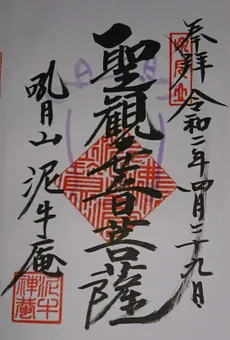 奉拝 令和二年四月二十九日
聖觀音菩薩
吼月山 泥牛庵
泥牛禅庵